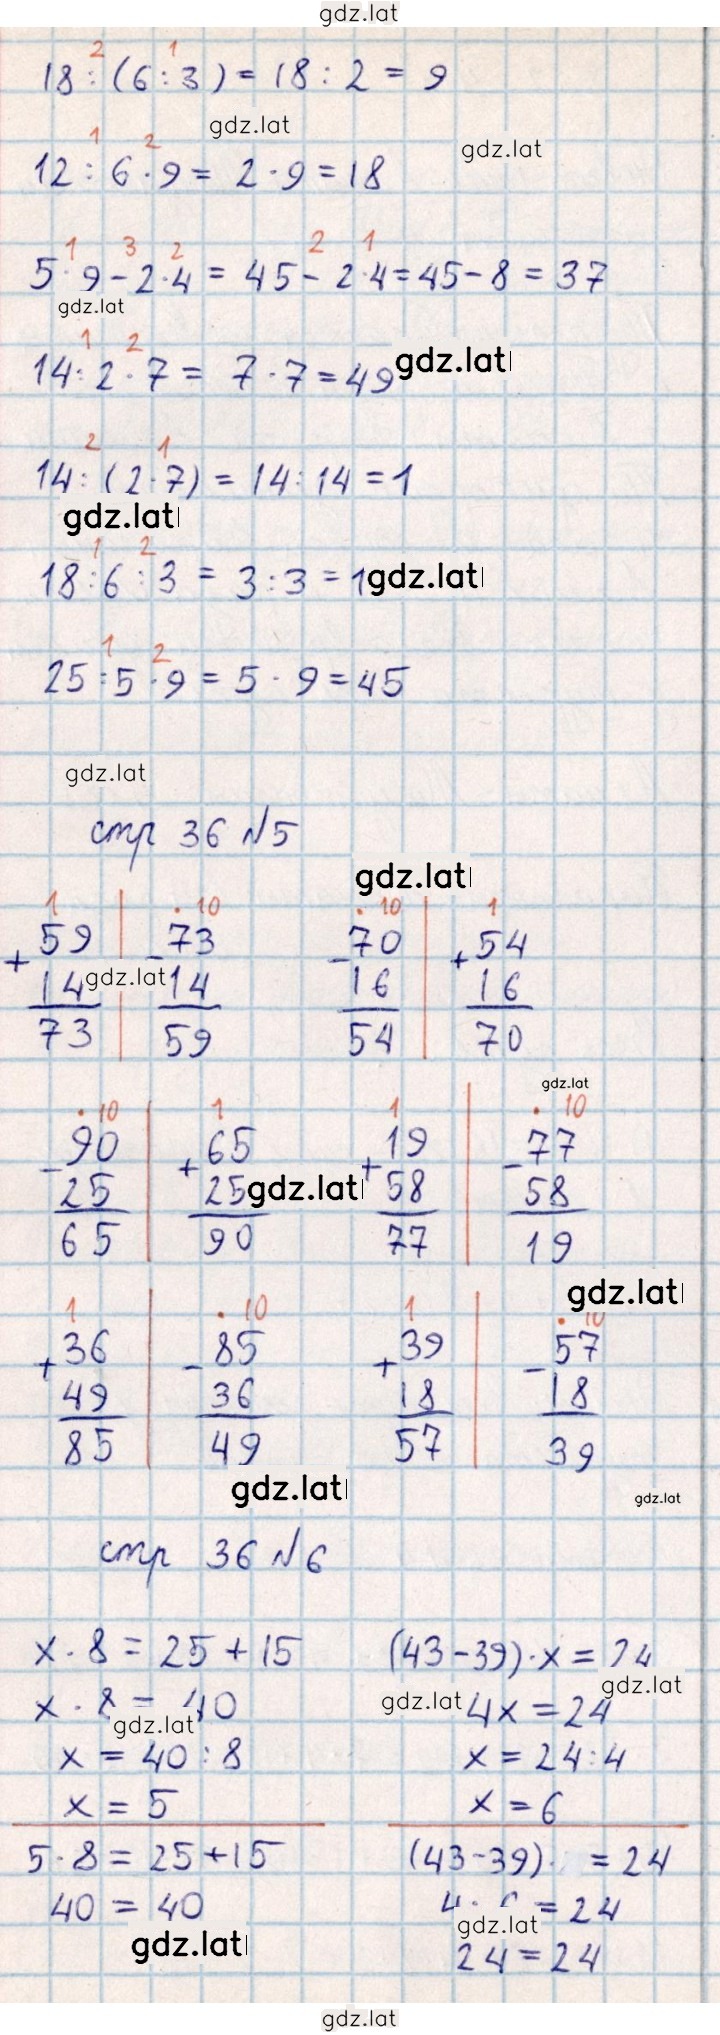 gdz.lat
2 1
18 : (6 : 3) = 18 : 2 = 9
gdz.lat
1 2
gdz.lat
12 : 6 · 9 = 2 · 9 = 18
1 3 2 2 1
5 · 9 - 2 · 4 = 45 - 2 · 4 = 45 - 8 = 37
gdz.lat
1 2
14 : 2 · 7 = 7 · 7 = 49 gdz.lat
2 1
14 : (2 · 7) = 14 : 14 = 1
gdz.lat
1 2
18 : 6 : 3 = 3 : 3 = 1 gdz.lat
1 2
25 : 5 · 9 = 5 · 9 = 45
gdz.lat
стр 36 №5
gdz.lat
1 · 10 · 10 1
+ 59 - 73 - 70 + 54
14 gdz.lat 14 16 16
73 59 54 70
gdz.lat
· 10 1 1 · 10
- 90 + 65 + 19 - 77
25 25 gdz.lat 58 58
65 90 77 19
gdz.lat
1 · 10 1 · 10
+ 36 - 85 + 39 - 57
49 36 18 18
85 49 57 39
gdz.lat gdz.lat
стр 36 №6
x · 8 = 25 + 15 (43 - 39) · x = 24
gdz.lat
x · 8 = 40 gdz.lat 4x = 24
gdz.lat
x = 40 : 8 x = 24 : 4
x = 5 x = 6
5 · 8 = 25 + 15 (43 - 39) · = 24
40 = 40 4 · 6 = 24
gdz.lat gdz.lat
24 = 24
gdz.lat